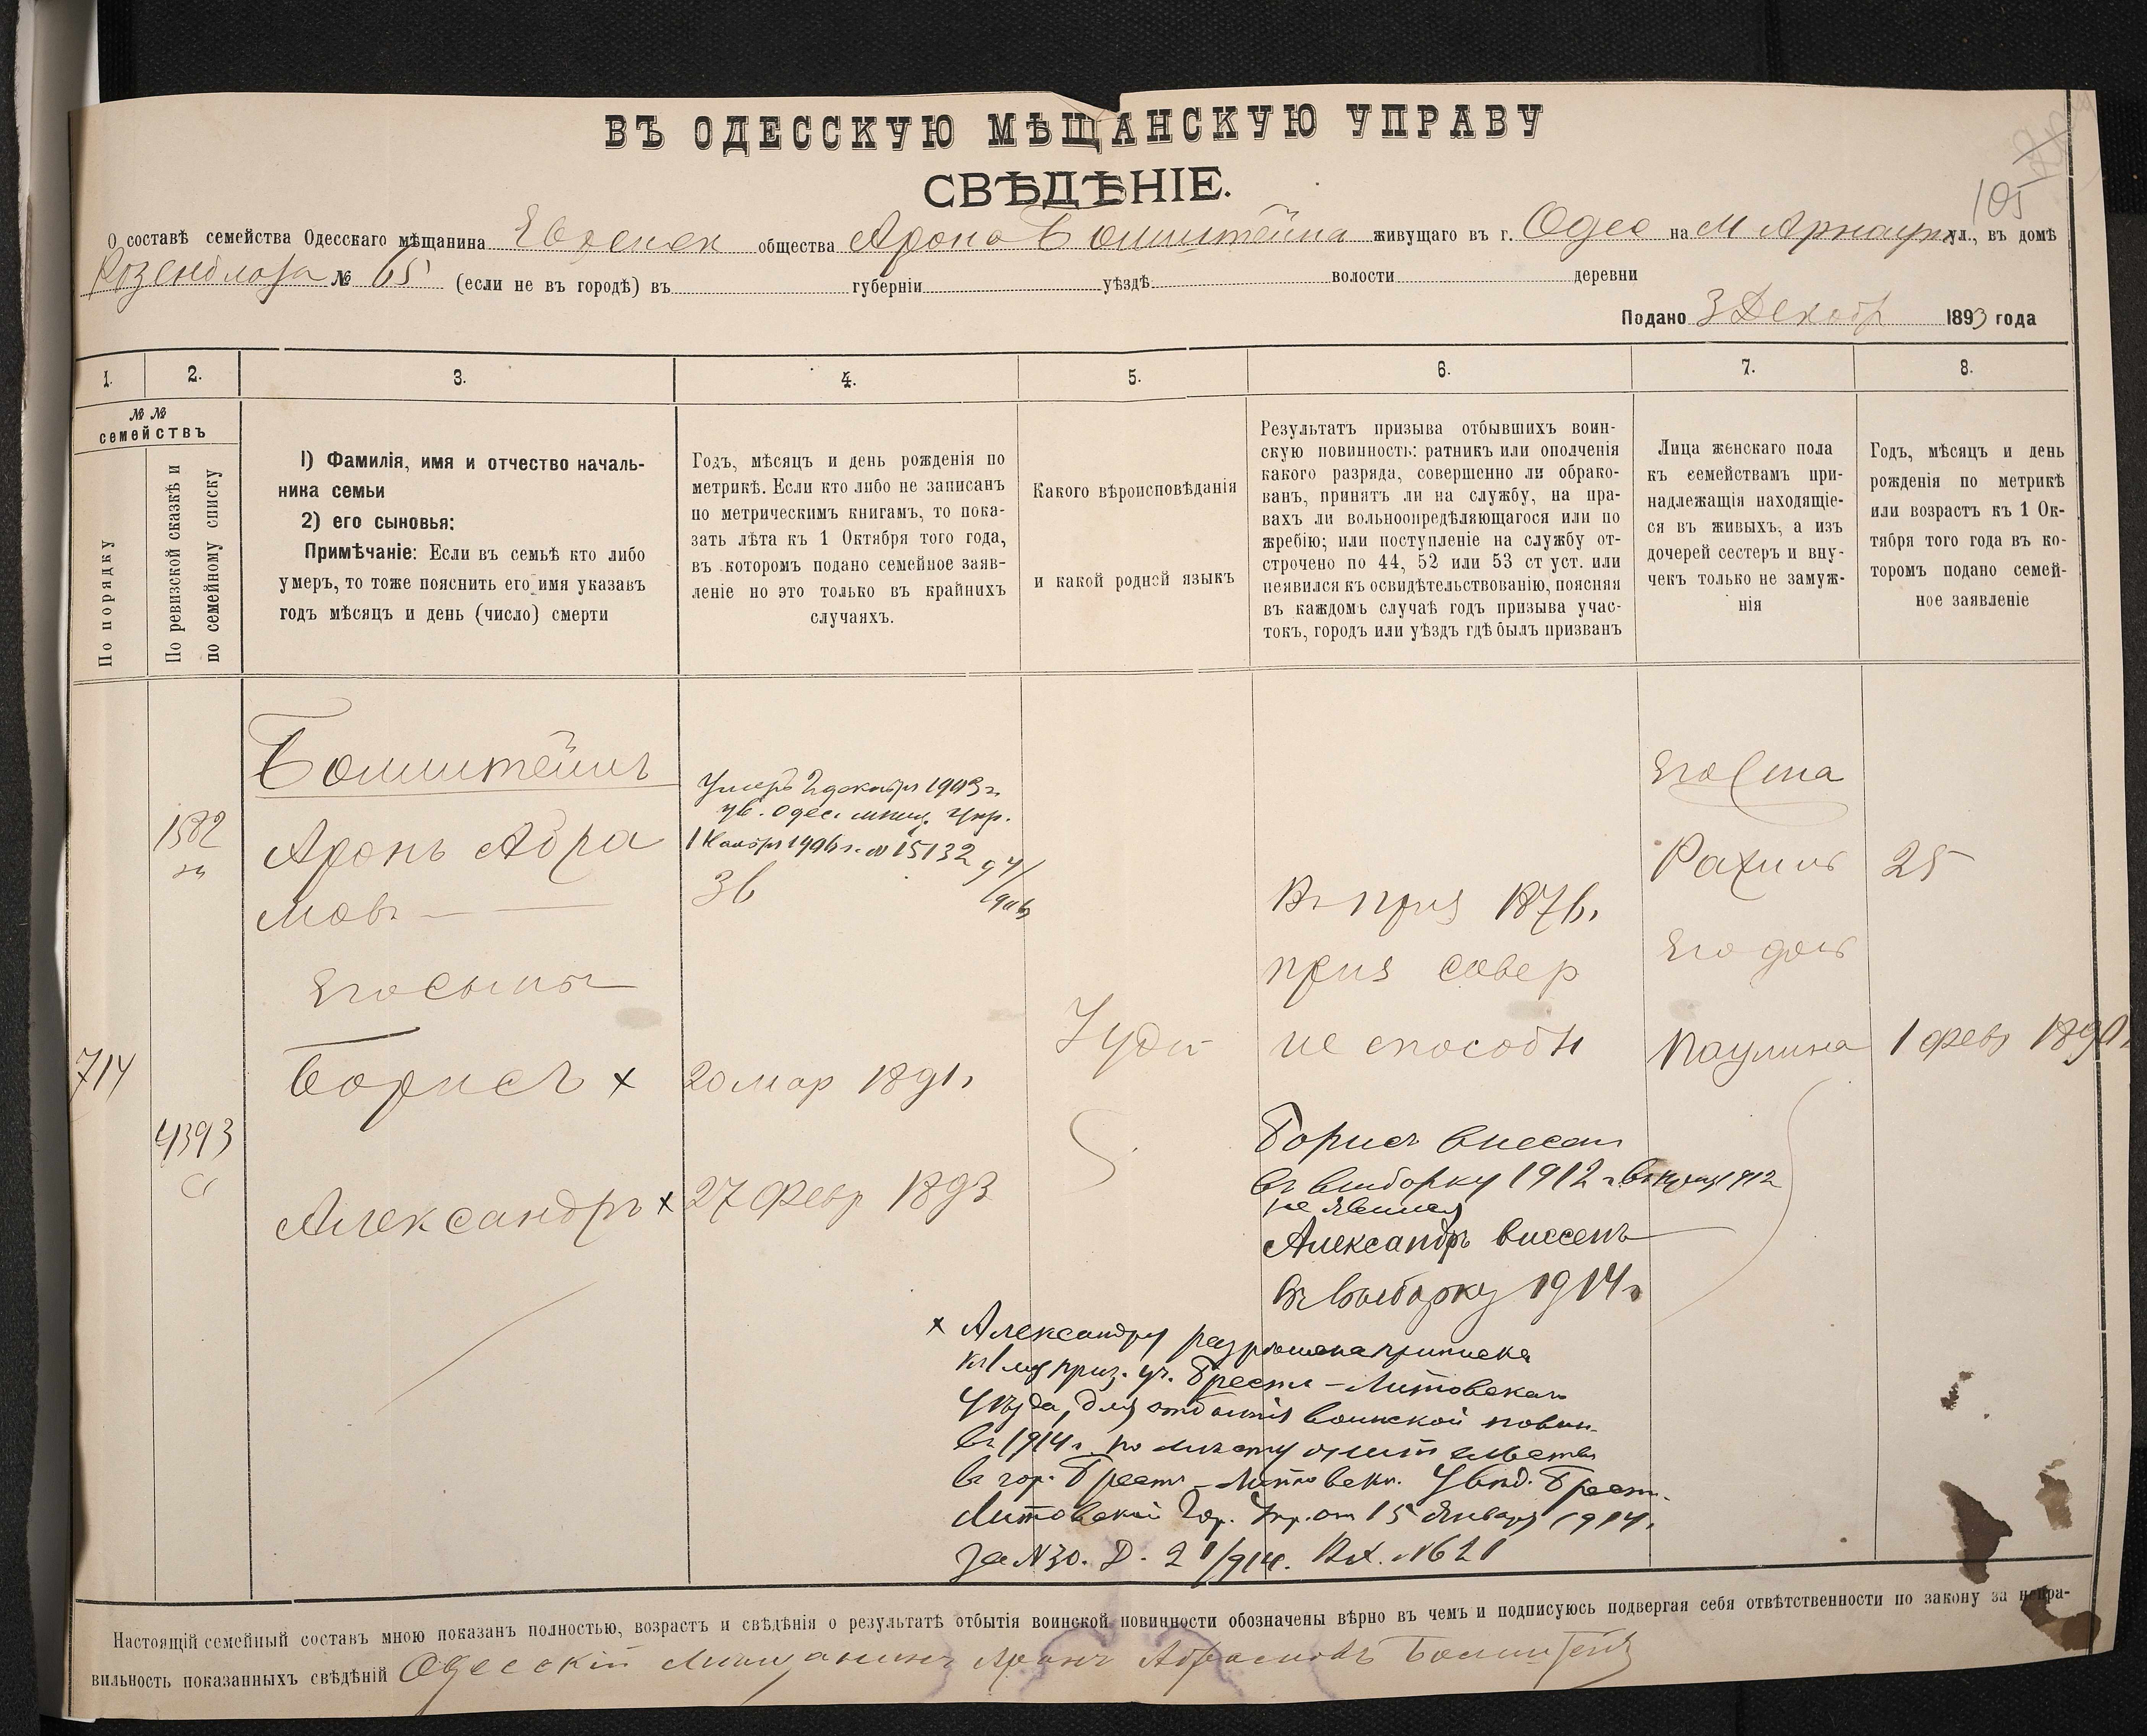 ВЪ ОДЕССКУЮ МѢЩАНСКУЮ УПРАВУ
СВѢДѢНІЕ.
105
О составѣ семейства Одесскаго мѣщанина Еврейск общества Арона Бомштейна живущаго въ г. Одес на М Арнаутк ул., въ домѣ
№ 65 (если не въ городѣ) въ губерніи уѣздѣ волости деревни
Подано 3 Декабр 1893 года
1. 2. 3. 4. 5. 6. 7. 8.
№ №
семействъ
По порядку
По ревизской сказкѣ и
по семейному списку
1) Фамилія, имя и отчество началь-
ника семьи
2) его сыновья:
Примѣчаніе: Если въ семьѣ кто либо
умеръ, то тоже пояснить его имя указавъ
годъ мѣсяцъ и день (число) смерти
Годъ, мѣсяцъ и день рожденія по
метрикѣ. Если кто либо не записанъ
по метрическимъ книгамъ, то пока-
зать лѣта къ 1 Октября того года,
въ котором подано семейное заяв-
леніе но это только въ крайнихъ
случаяхъ.
Какого вѣроисповѣданія
и какой родной языкъ
Результатъ призыва отбывшихъ воин-
скую повинность: ратникъ или ополченія
какого разряда, совершенно ли обрако-
ванъ, принятъ ли на службу, на пра-
вахъ ли вольноопредѣляющагося или по
жребію; или поступленіе на службу от-
строчено по 44, 52 или 53 ст уст. или
неявился къ освидѣтельствованію, поясняя
въ каждомъ случаѣ годъ призыва учас-
токъ, городъ или уѣздъ гдѣ былъ призванъ
Лица женскаго пола
къ семействамъ при-
надлежащія находящіе-
ся въ живыхъ, а изъ
дочерей сестеръ и вну-
чекъ только не замуж-
нія
Годъ, мѣсяцъ и день
рожденія по метрикѣ
или возрастъ къ 1 Ок-
тября того года въ ко-
торомъ подано семей-
ное заявленіе
Бомштейнъ
Умеръ 2 декабря 1903 г.
ув. Одес. мѣщ. Упр.
1 Ноября 1906 г. № 15132
1582
Аронъ Абра
мовъ
36
В приз 1876г
приз совер
не способн
Его жена
Рахиль 25
Его дочь
Паулина 1 февр 1890г
Его сыны
714
Борисъ х 20 мар 1891г
Іудей
4393
Александръ х 27 февр 1893
Борисъ внесен
въ выборку 1912 г. въ призыв 1912
не явился
Александръ внесенъ
въ выборку 1914 г
х Александру разрѣшена приписка
къ 1му приз. уч. Брестъ-Литовскаго
уѣзда, для отбытія воинской повин.
въ 1914 г. по мѣсту жительства
въ гор. Брестъ-Литовскъ. Увѣд. Брест-
Литовской Гор. Упр. от 15 Января 1914г.
за №30. Вх. №621
Настоящій семейный составъ мною показанъ полностью, возрастъ и свѣдѣнія о результатѣ отбытія воинской повинности обозначены вѣрно въ чемъ и подписуюсь подвергая себя отвѣтственности по закону за непра-
вильность показанныхъ свѣдѣній Одесскій Мищанинъ Аронъ Абрамовъ Бомштейн